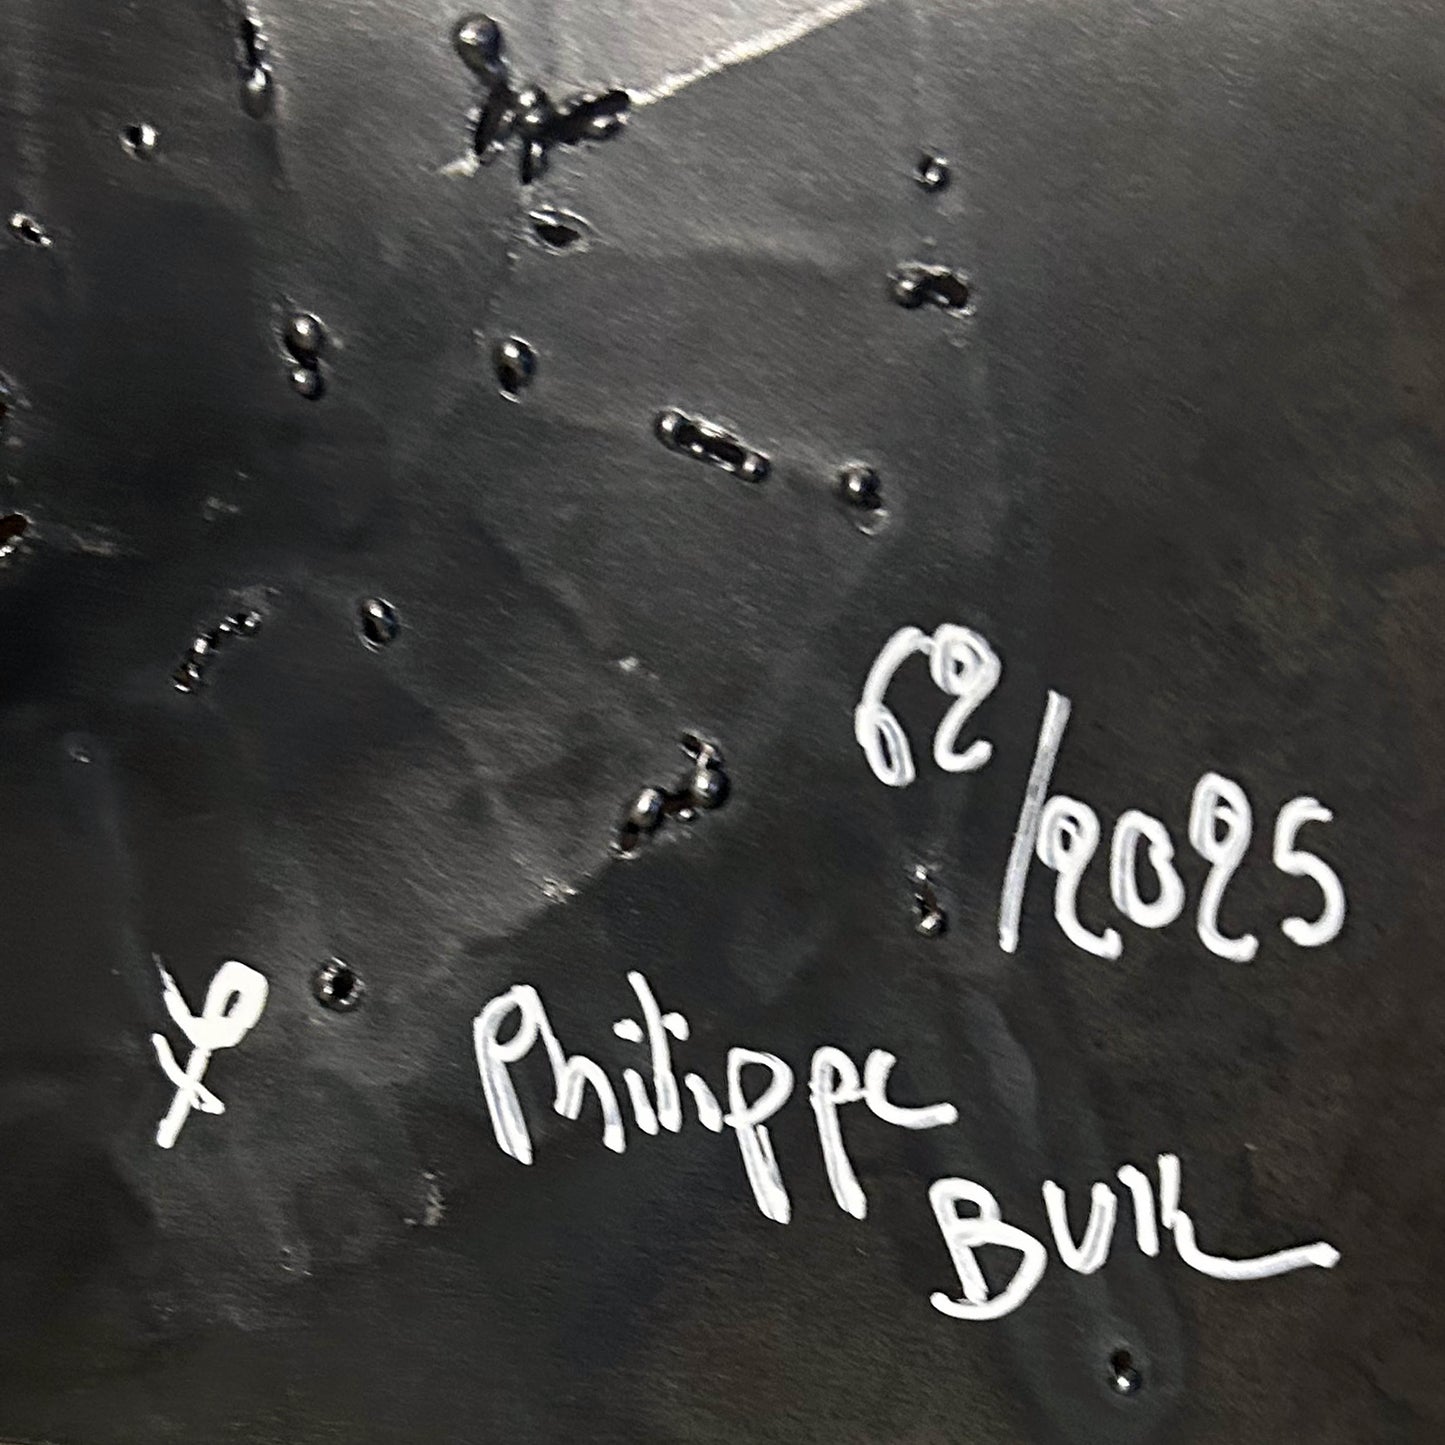 62/2025
Philippe
BUIK